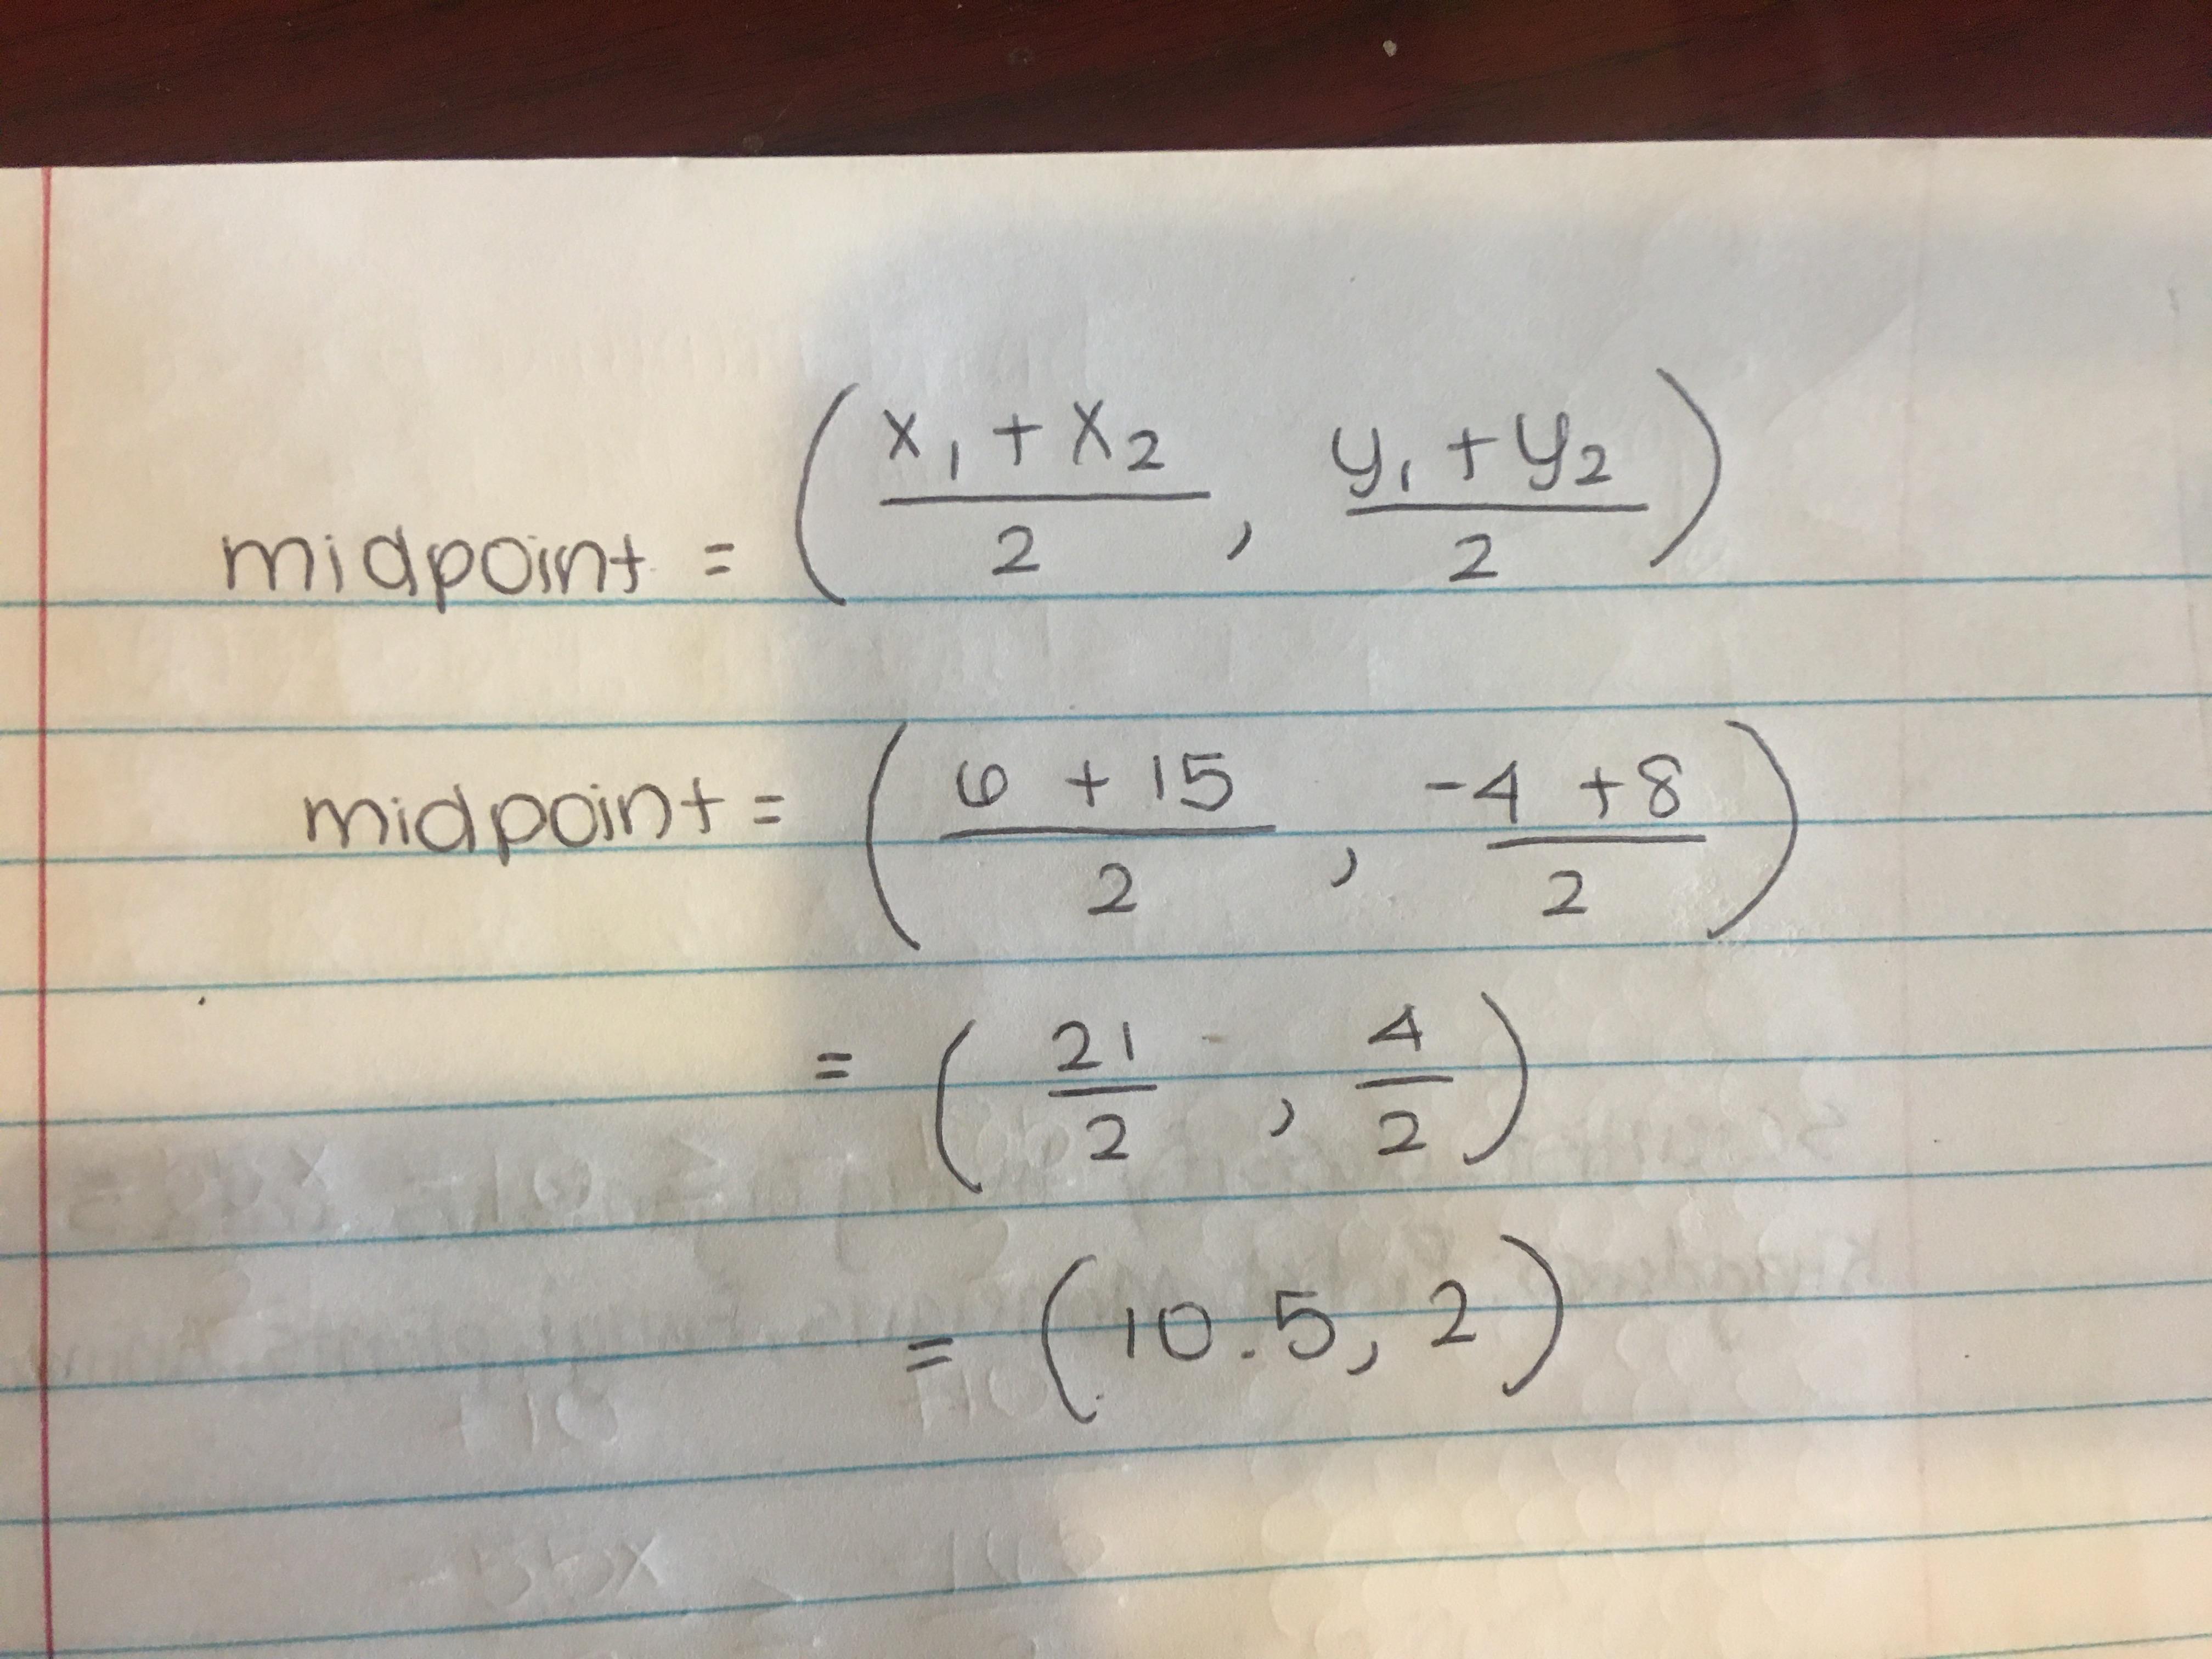 midpoint = ( x₁ + x₂ / 2 , y₁ + y₂ / 2 )
midpoint = ( 6 + 15 / 2 , -4 + 8 / 2 )
= ( 21 / 2 , 4 / 2 )
= ( 10.5, 2 )